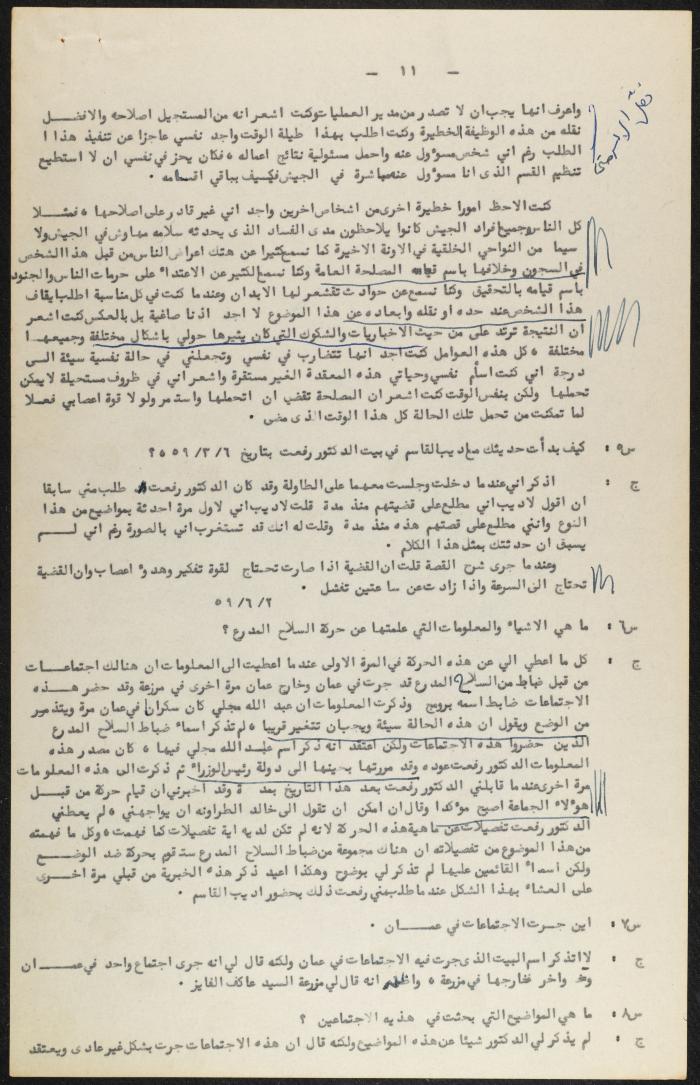 - ١١ -
واعرف انها يجب ان لا تصدر من مدير العمليات وكنت اشعر انه من المستحيل اصلاحه والافضل
نقله من هذه الوظيفة الخطيرة وكنت اطلب بهذا طيلة الوقت واجد نفسي عاجزا عن تنفيذ هذا ا
الطلب رغم اني شخص مسؤول عنه واحمل مسئولية نتائج اعماله ، فكان يحز في نفسي ان لا استطيع
تنظيم القسم الذي انا مسؤول عنه مباشرة في الجيش فكيف بباقي اقسامه .
كنت الاحظ امورا خطيرة اخرى من اشخاص اخرين واجد اني غير قادر على اصلاحها ، فمثلا
كل الناس وجميع افراد الجيش كانوا يلاحظون مدى الفساد الذي يحدثه سلامه مهاوش في الجيش ولا
سيما من النواحي الخلقية في الاونة الاخيرة كما نسمع كثيرا عن هتك اعراض الناس من قبل هذا الشخص
في السجون وخلافها باسم المصلحة العامة وكنا نسمع الكثير عن الاعتداء على حرمات الناس والجنود
باسم قيامه بالتحقيق وكنا نسمع عن حوادث تقشعر لها الابدان وعندما كنت في كل مناسبة اطلب ايقاف
هذا الشخص عند حده او نقله وابعاده عن هذا الموضوع لا اجد اذنا صاغية بل بالعكس كنت اشعر
ان النتيجة ترتد على من حيث الاخباريات والشكوك التي كان يثيرها حولي باشكال مختلفة وجميعها
مختلفة ، كل هذه العوامل كنت اجد انها تتضارب في نفسي وتجعلني في حالة نفسية سيئة الى
درجة اني كنت اسأم نفسي وحياتي هذه المعقدة الغير مستقرة واشعر اني في ظروف مستحيلة لا يمكن
تحملها ولكن بنفس الوقت كنت اشعر ان المصلحة تقضي ان اتحملها واستمر ولولا قوة اعصابي فعلا
لما تمكنت من تحمل تلك الحالة كل هذا الوقت الذي مضى .
س٥ : كيف بدأت حديثك مع اديب القاسم في بيت الدكتور رفعت بتاريخ ٥٩/٣/٦ ؟
ج : اذكر اني عندما دخلت وجلست معهما على الطاولة وقد كان الدكتور رفعت طلب مني سابقا
ان اقول لاديب اني مطلع على قضيتهم منذ مدة قلت لاديب اني لاول مرة احدثة بمواضيع من هذا
النوع وانني مطلع على قصتهم هذه منذ مدة وقلت له انك قد تستغرب اني بالصورة رغم اني لم
يسبق ان حدثتك بمثل هذا الكلام .
وعندما جرى شرح القصة قلت ان القضية اذا صارت تحتاج لقوة تفكير وهدوء اعصاب وان القضية
تحتاج الى السرعة واذا زادت عن ساعتين تفشل .
٥٩/٦/٢
س٦ : ما هي الاشياء والمعلومات التي علمتها عن حركة السلاح المدرع ؟
ج : كل ما اعطي الي عن هذه الحركة في المرة الاولى عندما اعطيت الى المعلومات ان هنالك اجتماعات
من قبل ضباط من السلاح المدرع قد جرت في عمان وخارج عمان مرة اخرى في مزرعة وقد حضر هذه
الاجتماعات ضابط اسمه بروبج وذكرت المعلومات ان عبد الله مجلي كان سكران في عمان مرة ويتذمر
من الوضع ويقول ان هذه الحالة سيئة ويجب ان تتغير قريبا ، لم تذكر اسماء ضباط السلاح المدرع
الذين حضروا هذه الاجتماعات ولكن اعتقد انه ذكر اسم عبد الله مجلي فيها ، كان مصدر هذه
المعلومات الدكتور رفعت عوده وقد مررتها بحينها الى دولة رئيس الوزراء ثم ذكرت الى هذه المعلومات
مرة اخرى عندما قابلني الدكتور رفعت بعد هذا التاريخ بمدة وقد اخبرني ان قيام حركة من قبل
هؤلاء الجماعة اصبح مؤكدا وقال ان امكن ان تقول الى خالد الطراونه ان يواجهني ، لم يعطني
الدكتور رفعت تفصيلات عن ماهية هذه الحركة لانه لم تكن لديه اية تفصيلات كما فهمت ، وكل ما فهمته
من هذا الموضوع من تفصيلاته ان هناك مجموعة من ضباط السلاح المدرع ستقوم بحركة ضد الوضع
ولكن اسماء القائمين عليها لم تذكر لي بوضوح وهكذا اعيد ذكر هذه الخبرية من قبلي مرة اخرى
على العشاء بهذا الشكل عندما طلب مني رفعت ذلك بحضور اديب القاسم .
س٧ : اين جرت الاجتماعات في عمان .
ج : لا اتذكر اسم البيت الذي جرت فيه الاجتماعات في عمان ولكنه قال لي انه جرى اجتماع واحد في عمان
واخر خارجها في مزرعة ، واظن انه قال لي مزرعة السيد عاكف الفايز .
س٨ : ما هي المواضيع التي بحثت في هذيه الاجتماعين ؟
ج : لم يذكر لي الدكتور شيئا عن هذه المواضيع ولكنه قال ان هذه الاجتماعات جرت بشكل غير عادي ويعتقد